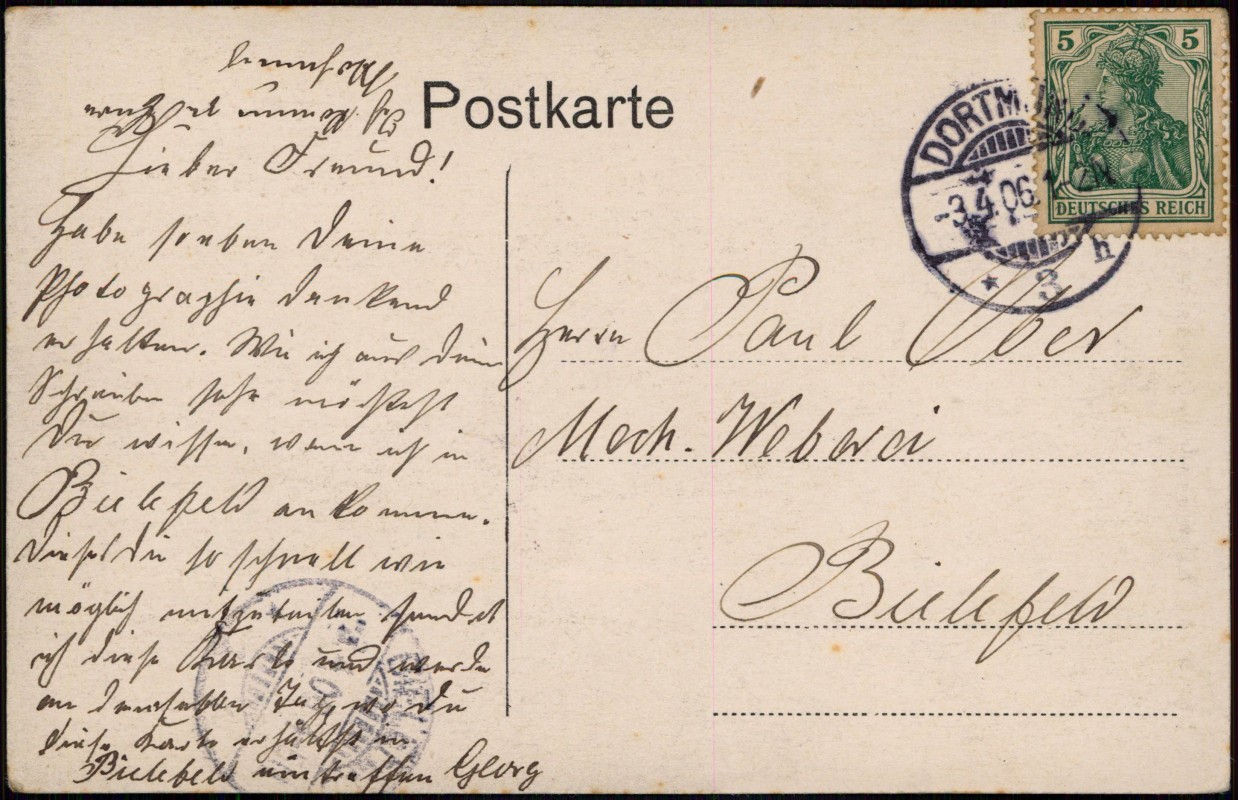 Postkarte
5 5
DEUTSCHES REICH
DORTMUND
-3.4.06.
* 3 h
Lieber Freund!
Habe soeben Deine
Photographie dankend
erhalten. Wie ich aus Dein
Schreiben sehe möchtest
Du wissen, wann ich in
Bielefeld ankomme.
Dieses Dir so schnell wie
möglich mitzuteilen sendet
ich diese Karte und werde
an demselben Tag, wo Du
diese Karte erhältst in
Bielefeld eintreffen Georg
Ich komme
Herrn Paul Ober
Mech. Weberei
Bielefeld